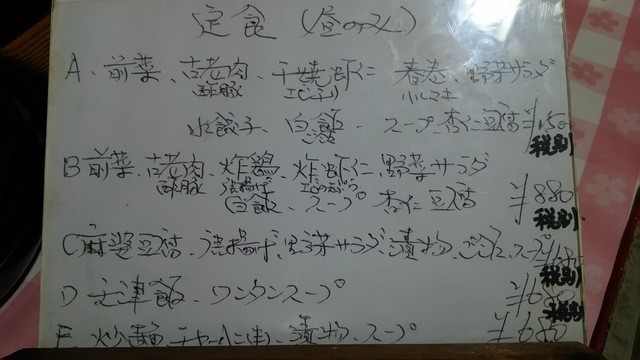 定食 (昼のみ)
A. 前菜、古老肉、干焼蝦仁 春巻、野菜サラダ
酢豚 エビチリ ハルマキ
水餃子、白飯、スープ、杏仁豆腐
ごはん
税別
B 前菜、古老肉、炸鶏、炸蝦仁、野菜サラダ
酢豚 唐揚げ
白飯、スープ 杏仁豆腐 ¥880
税別
C 麻婆豆腐、唐揚げ、野菜サラダ、漬物、ごはん、スープ
税別
D 天津飯、ワンタンスープ ¥680
税別
E 炒麺 漬物、スープ ¥680